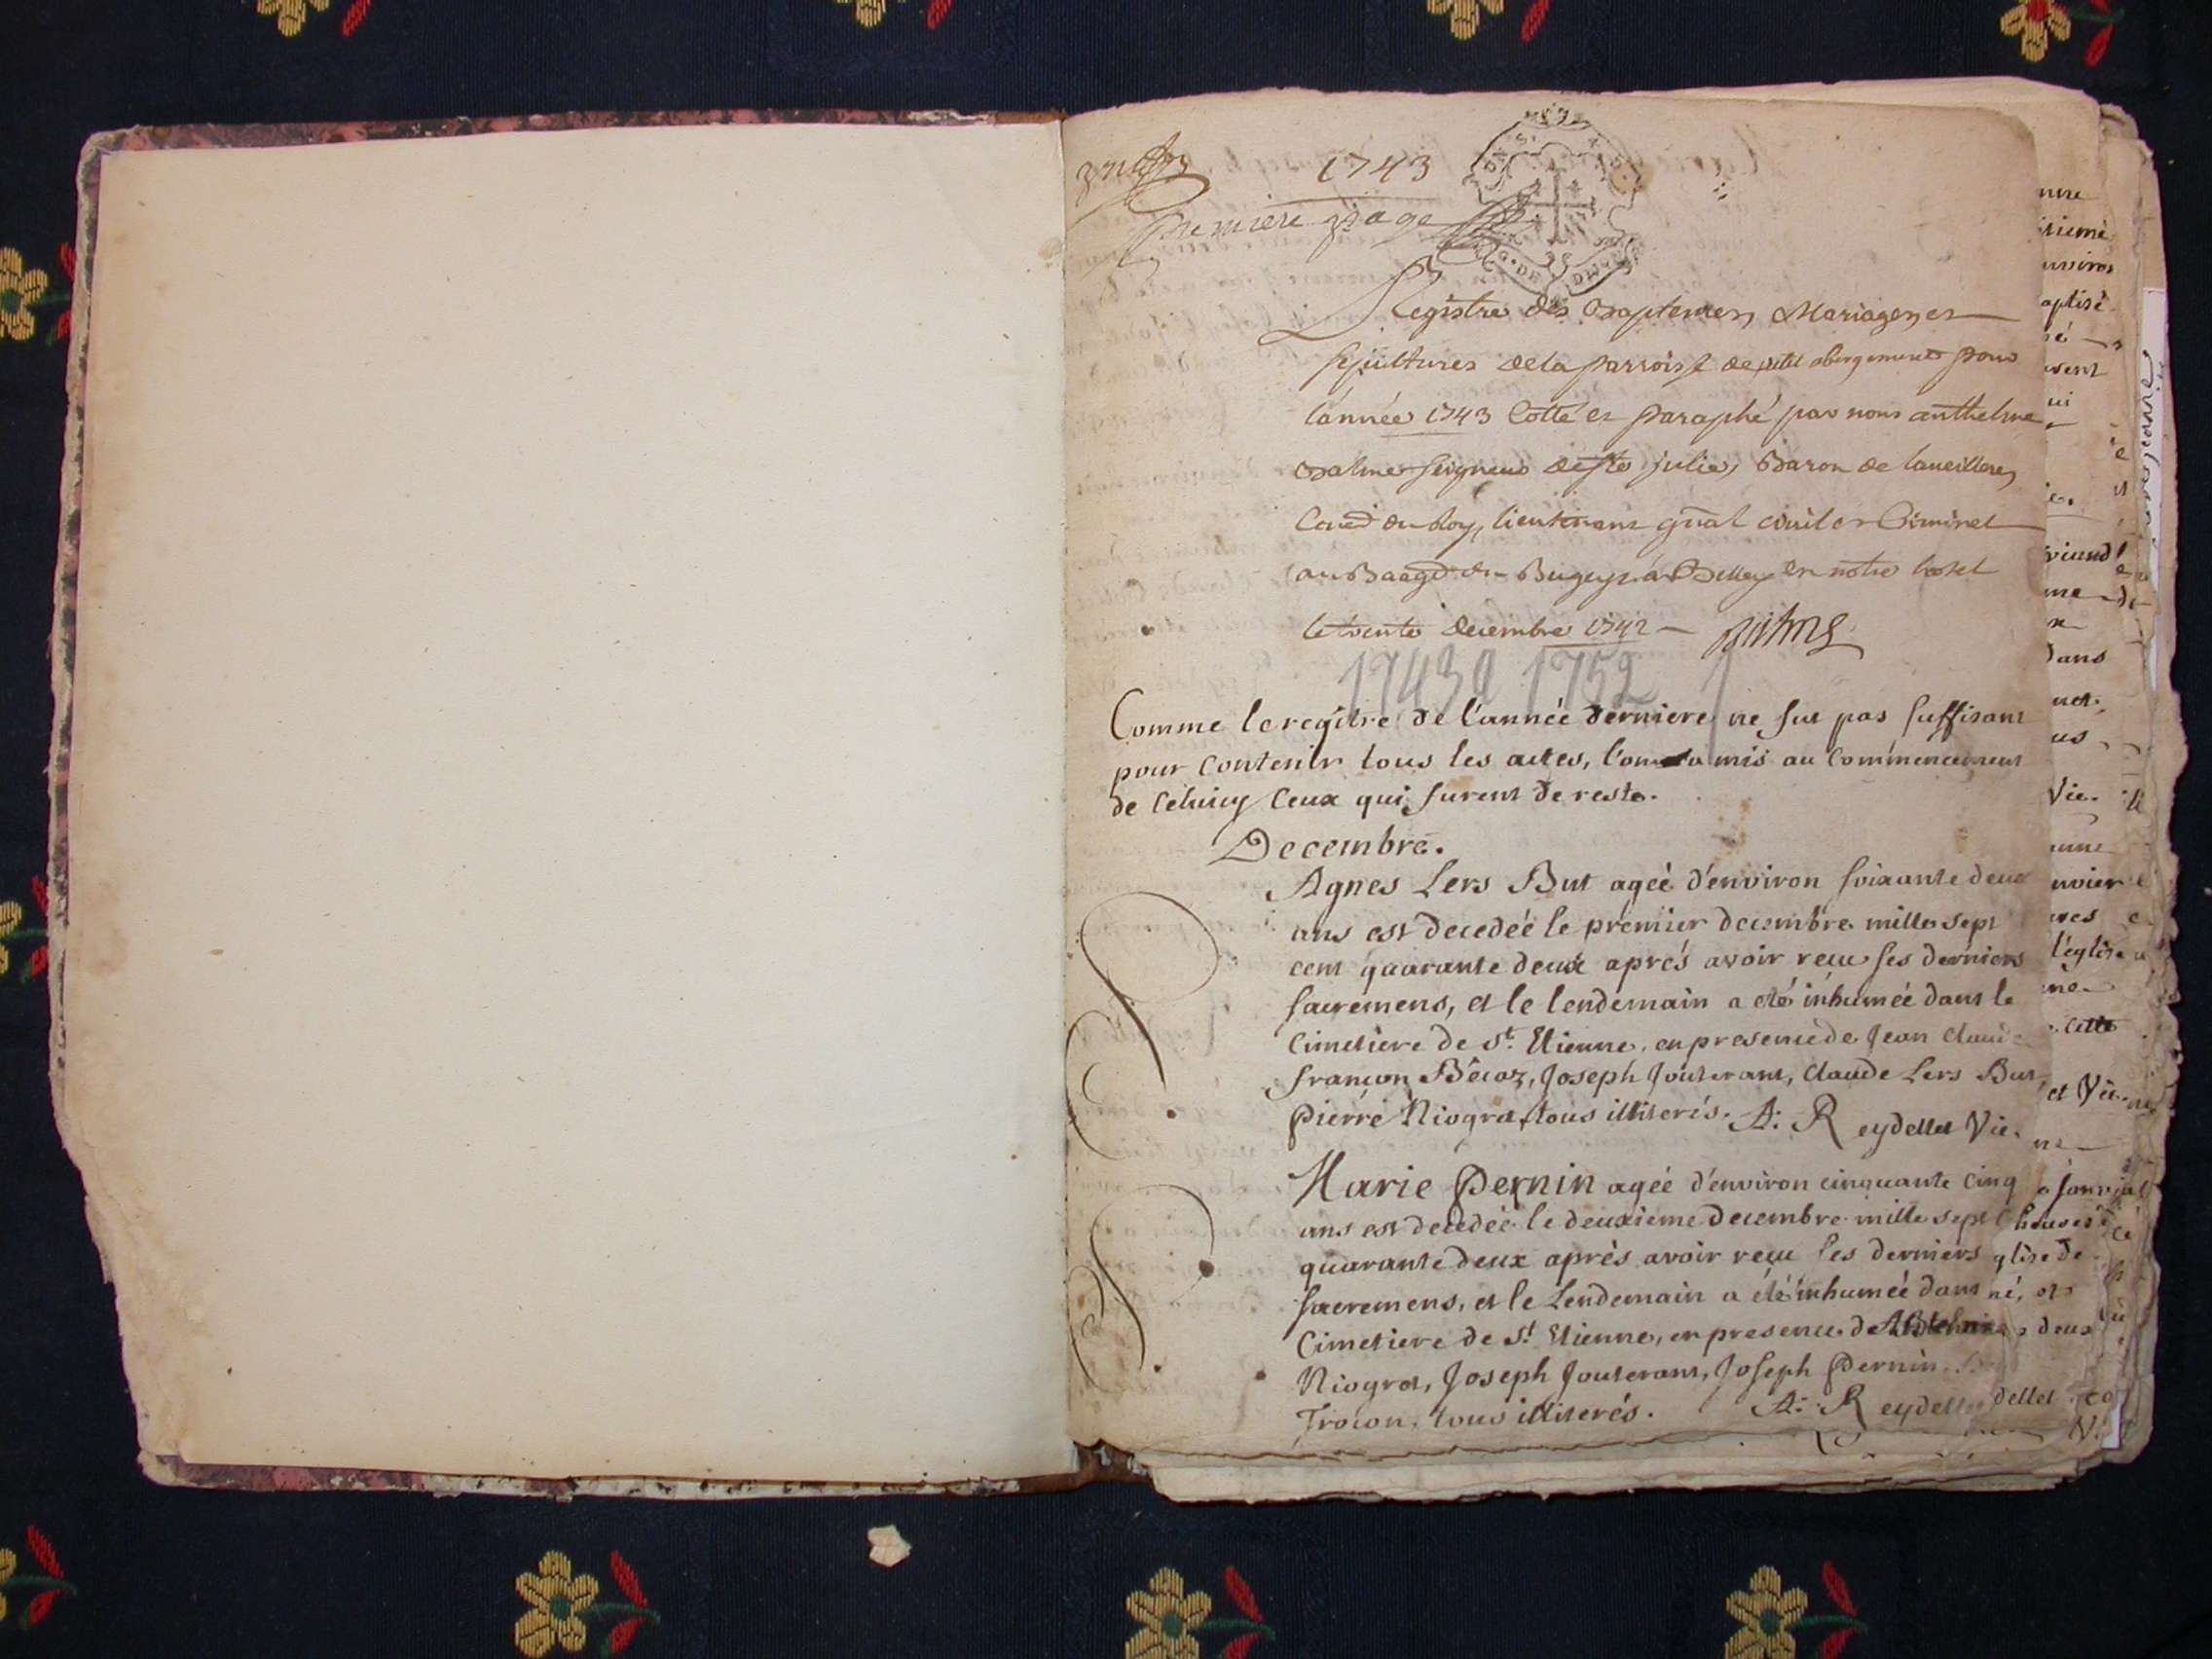 1743
premiere page
Registre des Baptemes, Mariages, et
sepultures dela parroisse de petit abergement pour
l'année 1743 Cotté et paraphé par nous anthelme
Balme seigneur de ste julie, Baron de
Con.er du Roy, lieutenant gñal civil et Criminel
au Baage du Bugey à Belley en notre hostel
le trente decembre 1742 Balme
1743 a 1752
Comme le regitre de l'année derniere ne fut pas suffisant
pour contenir tous les actes, l'on a mis au commencement
de celuicy ceux qui furent de reste.
Decembre.
Agnes Lers But ageé d'environ soixante deux
ans est decedeé le premier decembre mille sept
cent quarante deux aprés avoir reçu ses derniers
sacremens, et le lendemain a eté inhumeé dans le
Cimetiere de St. Etienne, en presence de Jean Claude
françon Bêcoz, Joseph Jouterant, Claude Lers But,
Pierre Niogret, tous illiterés. A: Reydellet Vic.
Marie Pernin ageé d'environ cinquante cinq
ans est decedeé le deuxieme decembre mille sept
quarante deux aprés avoir reçu les derniers
sacremens, et le Lendemain a eté inhumeé dans
Cimetiere de St. Etienne, en presence de
Niogret, Joseph Jouterant, Joseph Pernin
Trocon, tous illiterés. A: Reydellet